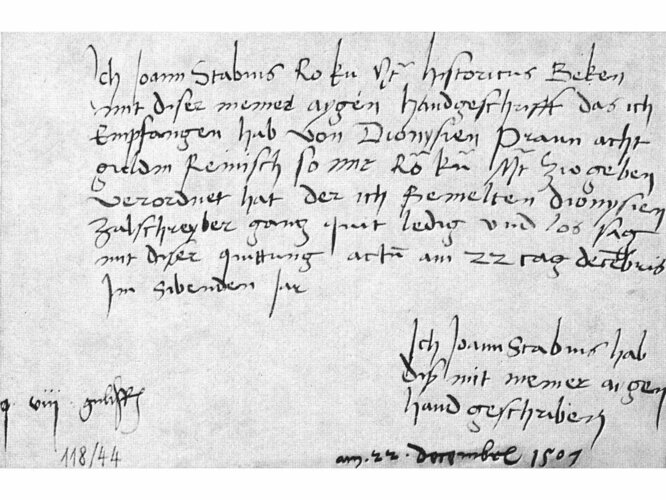 Ich Joann Stabius Ro ku Mt historicus Beken
mit diser meiner aygen handgeschrifft das ich
Empfangen hab von Dionysien Praun acht
guldin Reinisch so mir Ro ku Mt zw geben
verordnet hat der ich gemelten dionysien
zalschreyber gantz quit ledig und los sag
mit diser quittung actu am 22 tag decebris
Im sibenden Jar
Ich Joann Stabius hab
diß mit meiner aigen
hand geschriben
viii
118/44
am 22 decembel 1507